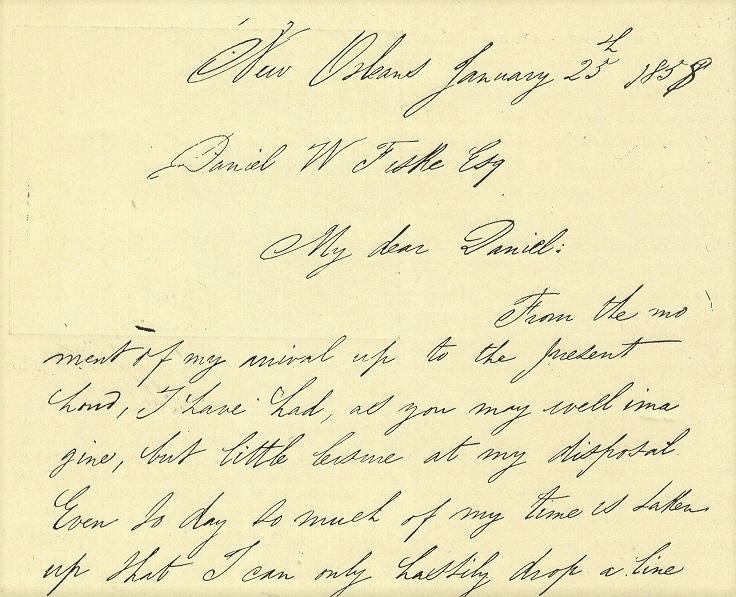 New Orleans January 25th 1858
Daniel W Fiske Esq
My dear Daniel:
From the mo
ment of my arrival up to the present
hour, I have had, as you may well ima
gine, but little leisure at my disposal
Even to day so much of my time is taken
up that I can only hastily drop a line